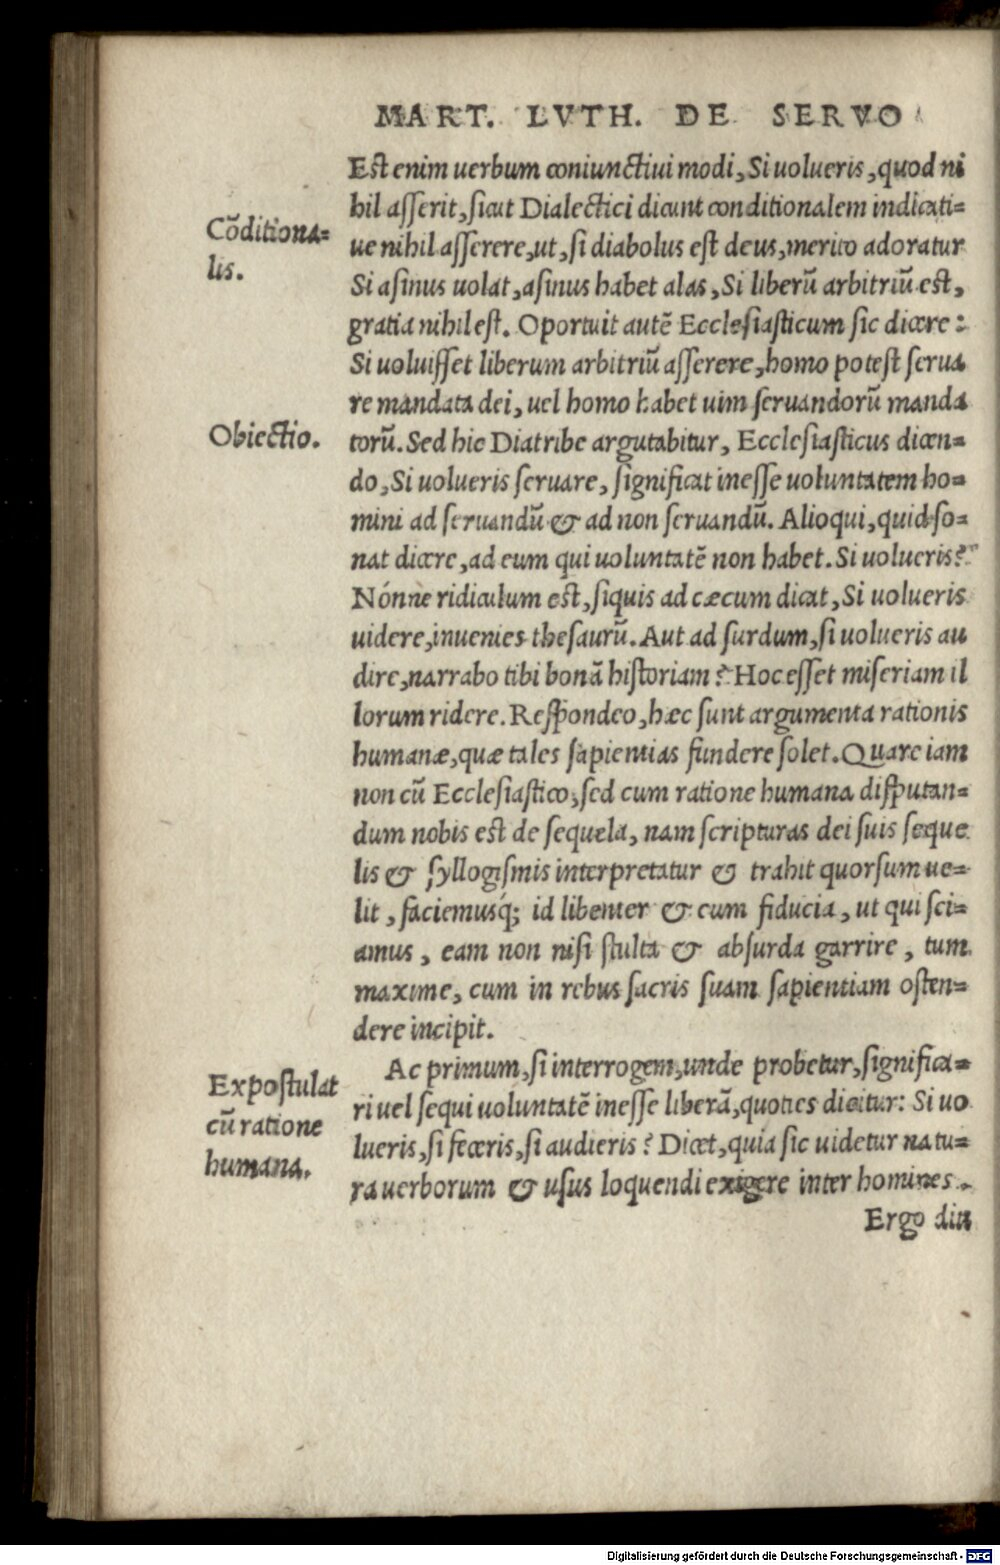 MART. LVTH. DE SERVO
Est enim uerbum coniunctiui modi, Si uolueris, quod ni
hil asserit, sicut Dialectici dicunt conditionalem indicati=
Cõditiona=
lis.
ue nihil asserere, ut, si diabolus est deus, merito adoratur
Si asinus uolat, asinus habet alas, Si liberũ arbitriũ est,
gratia nihil est. Oportuit autẽ Ecclesiasticum sic dicere:
Si uoluisset liberum arbitriũ asserere, homo potest serua
re mandata dei, uel homo habet uim seruandorũ manda
Obiectio.
torũ. Sed hic Diatribe argutabitur, Ecclesiasticus dicen=
do, Si uolueris seruare, significat inesse uoluntatem ho=
mini ad seruandũ & ad non seruandũ. Alioqui, quid so=
nat dicere, ad eum qui uoluntatẽ non habet. Si uolueris?
Nónne ridiculum est, siquis ad cæcum dicat, Si uolueris
uidere, inuenies thesaurũ. Aut ad surdum, si uolueris au
dire, narrabo tibi bonã historiam? Hoc esset miseriam il
lorum ridere. Respondeo, hæc sunt argumenta rationis
humanæ, quæ tales sapientias fundere solet. Quare iam
non cũ Ecclesiastico, sed cum ratione humana disputan=
dum nobis est de sequela, nam scripturas dei suis seque
lis & syllogismis interpretatur & trahit quorsum ue=
lit, faciemusq́; id libenter & cum fiducia, ut qui sci=
amus, eam non nisi stulta & absurda garrire, tum
maxime, cum in rebus sacris suam sapientiam osten=
dere incipit.
Ac primum, si interrogem, unde probetur, significa=
Expostulat
cũ ratione
humana.
ri uel sequi uoluntatẽ inesse liberã, quoties dicitur: Si uo
lueris, si feceris, si audieris? Dicet, quia sic uidetur natu=
ra uerborum & usus loquendi exigere inter homines.
Ergo diu
Digitalisierung gefördert durch die Deutsche Forschungsgemeinschaft - DFG